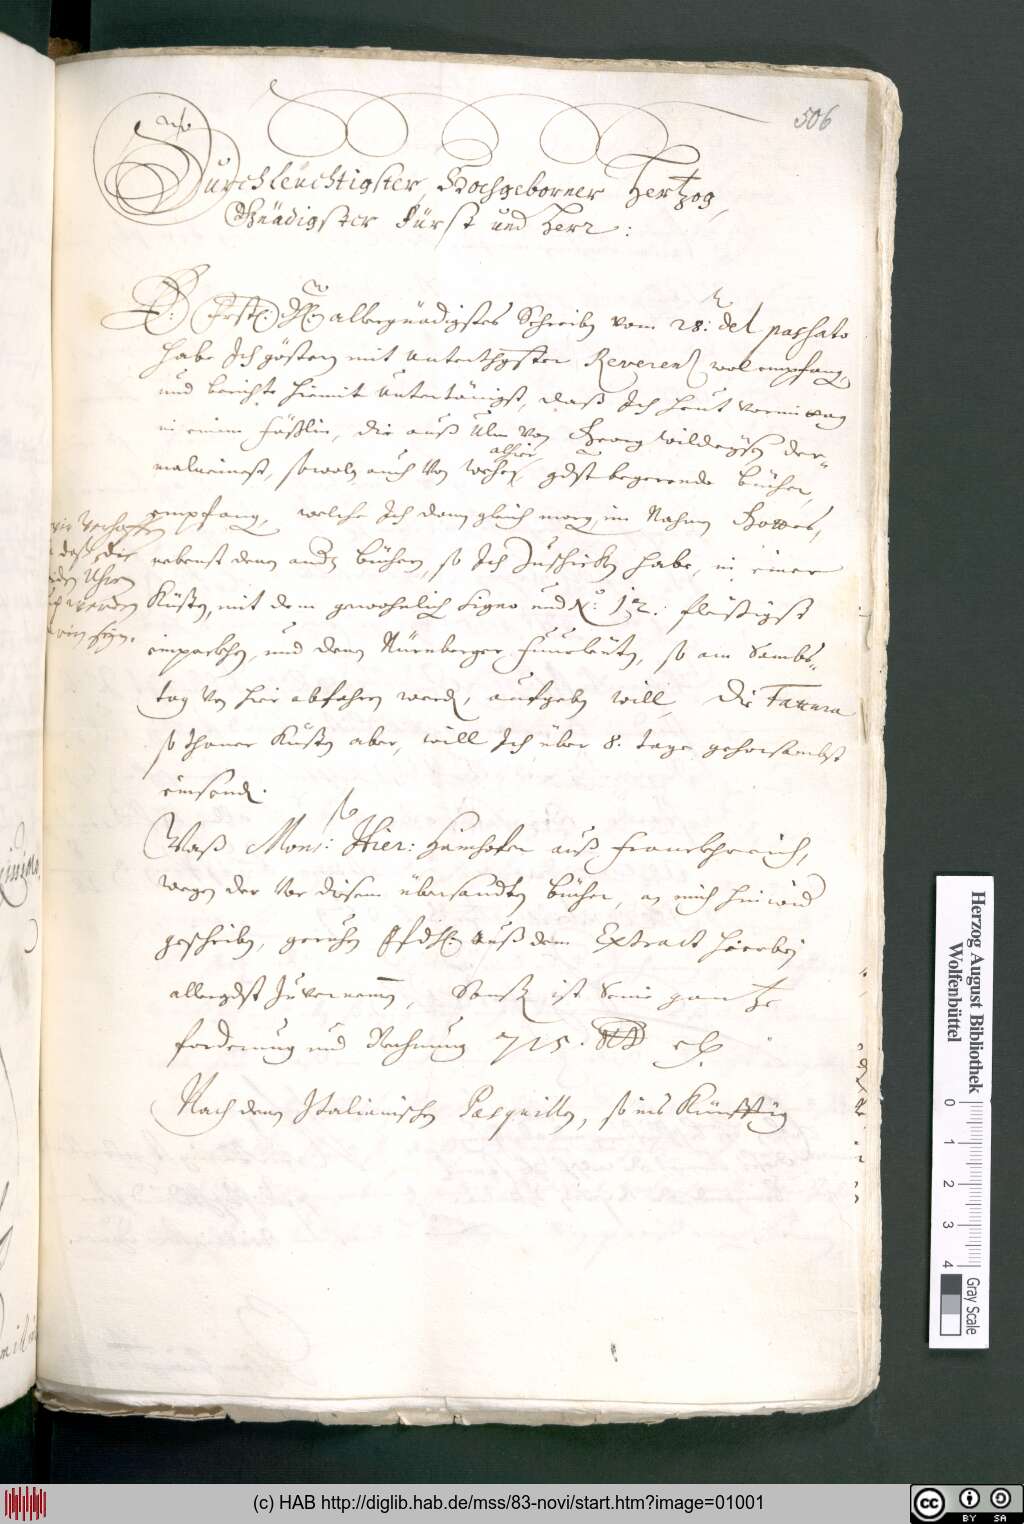 506
Durchleuchtigster, Hochgeborner Hertzog,
Gnädigster Fürst und Herr:
E: Fürstl: Gn: allergnädigstes Schreiben vom 28: del passato
habe Ich gestern mit unterthgster Reverenz wol empfangen,
und berichte hiemit unterthänigst, daß Ich heut vormittag
in einem Fäßlin, die auß Ulm von Georg Wildeysen der-
malneinst, sowoln auch von alhier gdst begerende Bücher,
empfangen, welche Ich dann gleich morgen im Nahmen Gottes,
nebenst denen andern Büchern, so Ich zuschicken habe, in einer
Küsten, mit dem gewohnlich Signo und No: 12: fleissigst
einpackhen, und denen Nürnberger Fuhrleuten, so am Sambs-
tag von hier abfahren werden, aufgeben will, Die Fattura
sothaner Küsten aber, will Ich über 8. tage gehorsambst
einsenden.
wie verhoffen
daß, die
Uhren
werden
sein.
Waß Mons: Hier: Hainhofer auß Franckhreich,
wegen der vor diesem übersandten Bücher, an mich hinwid
geschriben, geruhen auß dem Extract hierbej
allergdst zuvernemen, Sonst ist Seine gantze
forderung und Rechnung 715.
Nach denen Italianischen Pasquillen, so ins Künfftig
Herzog August Bibliothek
Wolfenbüttel
0 1 2 3 4
Gray Scale
(c) HAB http://diglib.hab.de/mss/83-novi/start.htm?image=01001
cc BY SA